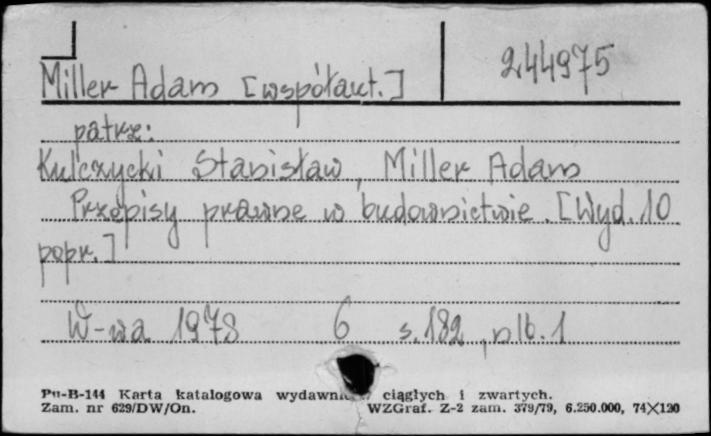 Miller Adam [współaut.] 244975
patrz:
Kulczycki Stanisław, Miller Adam
Przepisy prawne w budownictwie. [Wyd. 10
popr.]
W-wa 1978 6 s. 182, nlb. 1
Pu-B-144 Karta katalogowa ciągłych i zwartych.
Zam. nr 629/DW/On. WZGraf. Z-2 zam. 379/79, 6.250.000, 74×120